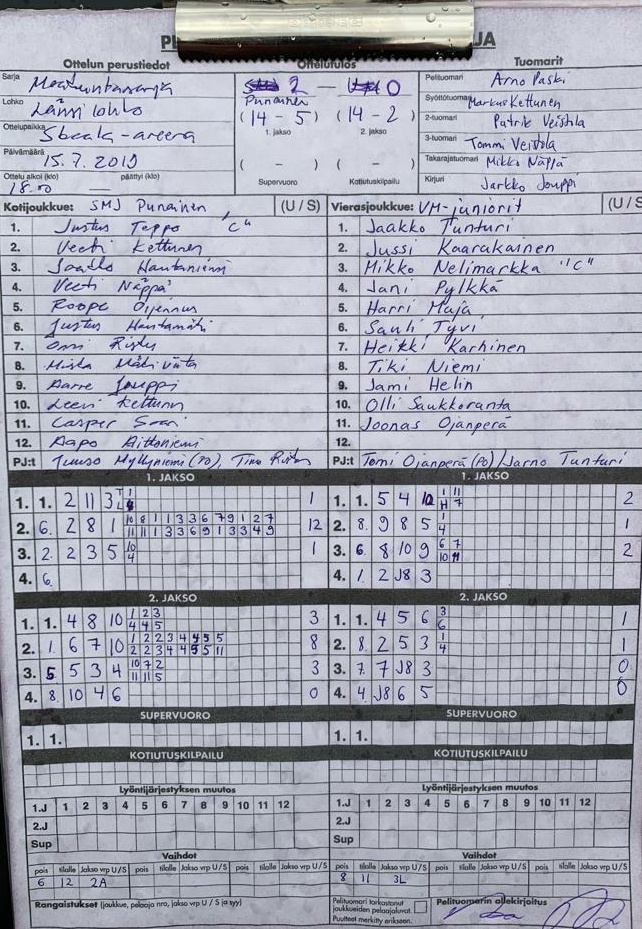 PÖ
JA
Ottelun perustiedot
Ottelutulos
Tuomarit
Sarja Maakuntasarja
Lohko Länsilohko
Ottelupaikka Sbcak-areena
Päivämäärä 15.7.2019
Ottelu alkoi (klo) 18.00 päättyi (klo)
2 - 0
Punainen
(14 - 5) (14 - 2)
1. jakso 2. jakso
( - ) ( - )
Supervuoro Kotiutuskilpailu
Pelituomari Arno Paski
Syöttötuomari Markus Kettunen
2-tuomari Patrik Veistola
3-tuomari Tommi Veistola
Takarajatuomari Mikko Näppä
Kirjuri Jarkko Jouppi
Kotijoukkue: SMJ Punainen (U / S)
1. Justus Teppo "C"
2. Veeti Kettunen
3. Jaakko Hautaniemi
4. Veeti Näppä
5. Roope Oijennus
6. Justus Hautamäki
7. Onni Ristus
8. Miska Mäkiviita
9. Aarre Jouppi
10. Leevi Kettunen
11. Casper Saari
12. Aapo Aitkoniemi
PJ:t Tuuso Myllyniemi (PO), Timo
Vierasjoukkue: VM-juniorit (U / S)
1. Jaakko Tunturi
2. Jussi Kaarakainen
3. Mikko Nelimarkka "C"
4. Jani Pylkkä
5. Harri Maja
6. Sauli Tyvi
7. Heikki Karhinen
8. Tiki Niemi
9. Jami Helin
10. Olli Saukkoranta
11. Joonas Ojanperä
12.
PJ:t Tomi Ojanperä (PO) / Jarno Tunturi
1. JAKSO
1. 1. 2 11 3 1
2. 6. 2 8 1 10 8 1 1 3 3 6 7 9 1 2 7 12
11 11 1 3 3 6 9 1 3 3 4 9
3. 2. 2 3 5 10 1
4
4. 6.
1. JAKSO
1. 1. 5 4 10 1 11 2
H 7
2. 8. 9 8 5 1 1
4
3. 6. 8 10 9 6 7 2
10 11
4. 1. 2 J8 3
2. JAKSO
1. 1. 4 8 10 1 2 3 3
4 4 5
2. 1. 6 7 10 1 2 2 3 4 4 5 5 8
2 2 3 4 4 5 5 11
3. 5. 5 3 4 10 7 2 3
11 11 5
4. 8. 10 4 6 0
2. JAKSO
1. 1. 4 5 6 3 1
6
2. 8. 2 5 3 1 1
4
3. 7. 7 J8 3 0
4. 4. J8 6 5 0
SUPERVUORO
1. 1.
SUPERVUORO
1. 1.
KOTIUTUSKILPAILU
KOTIUTUSKILPAILU
Lyöntijärjestyksen muutos
1.J 1 2 3 4 5 6 7 8 9 10 11 12
2.J
Sup
Lyöntijärjestyksen muutos
1.J 1 2 3 4 5 6 7 8 9 10 11 12
2.J
Sup
Vaihdot
pois tilalle Jakso vrp U / S pois tilalle Jakso vrp U / S pois tilalle Jakso vrp U / S
6 12 2A
Vaihdot
pois tilalle Jakso vrp U / S pois tilalle Jakso vrp U / S pois tilalle Jakso vrp U / S
8 11 3L
Rangaistukset (joukkue, pelaaja nro, jakso vrp U / S ja syy)
Pelituomari tarkastanut
joukkueiden pelaajaluvat.
Puutteet merkitty erikseen.
Pelituomarin allekirjoitus